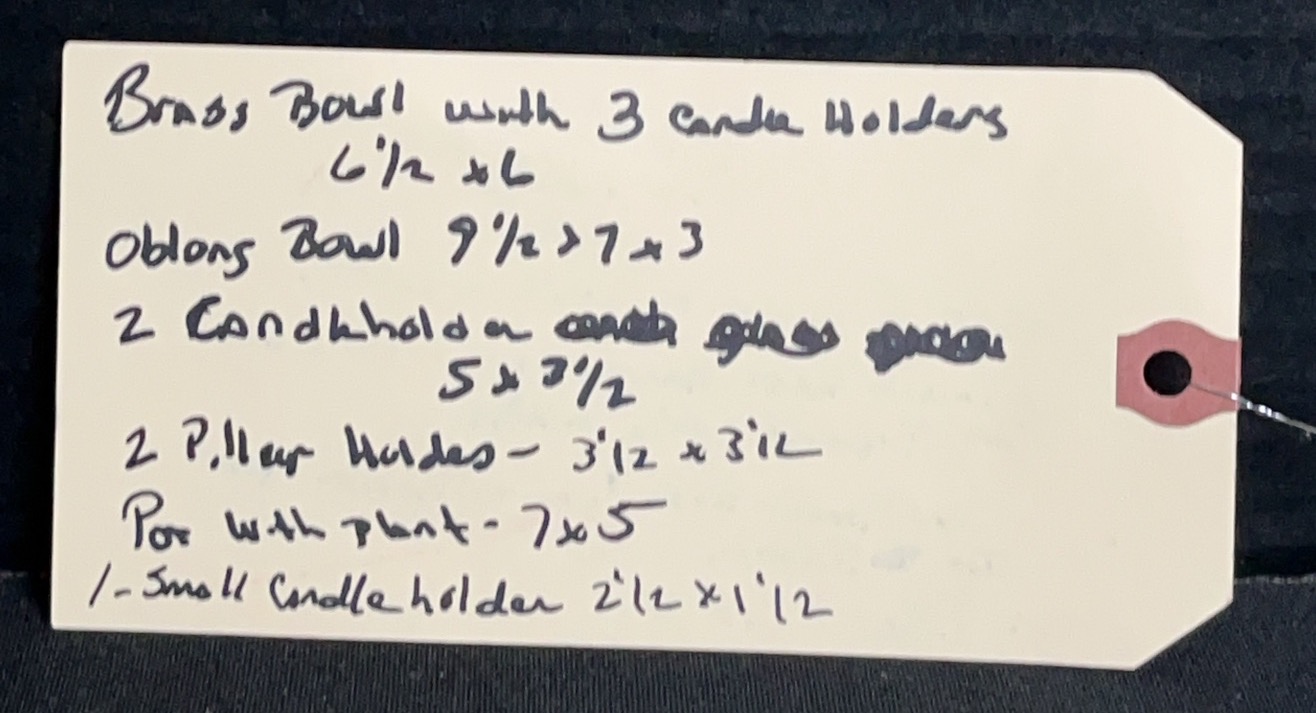 Brass Bowl with 3 Candle Holders
6 1/2 x 6
Oblong Bowl 9 1/2 x 7 x 3
2 Candleholder
5 x 3 1/2
2 Pillar Holdes - 3 1/2 x 3 1/2
Pot with plant - 7 x 5
1 - Small Candleholder 2 1/2 x 1 1/2